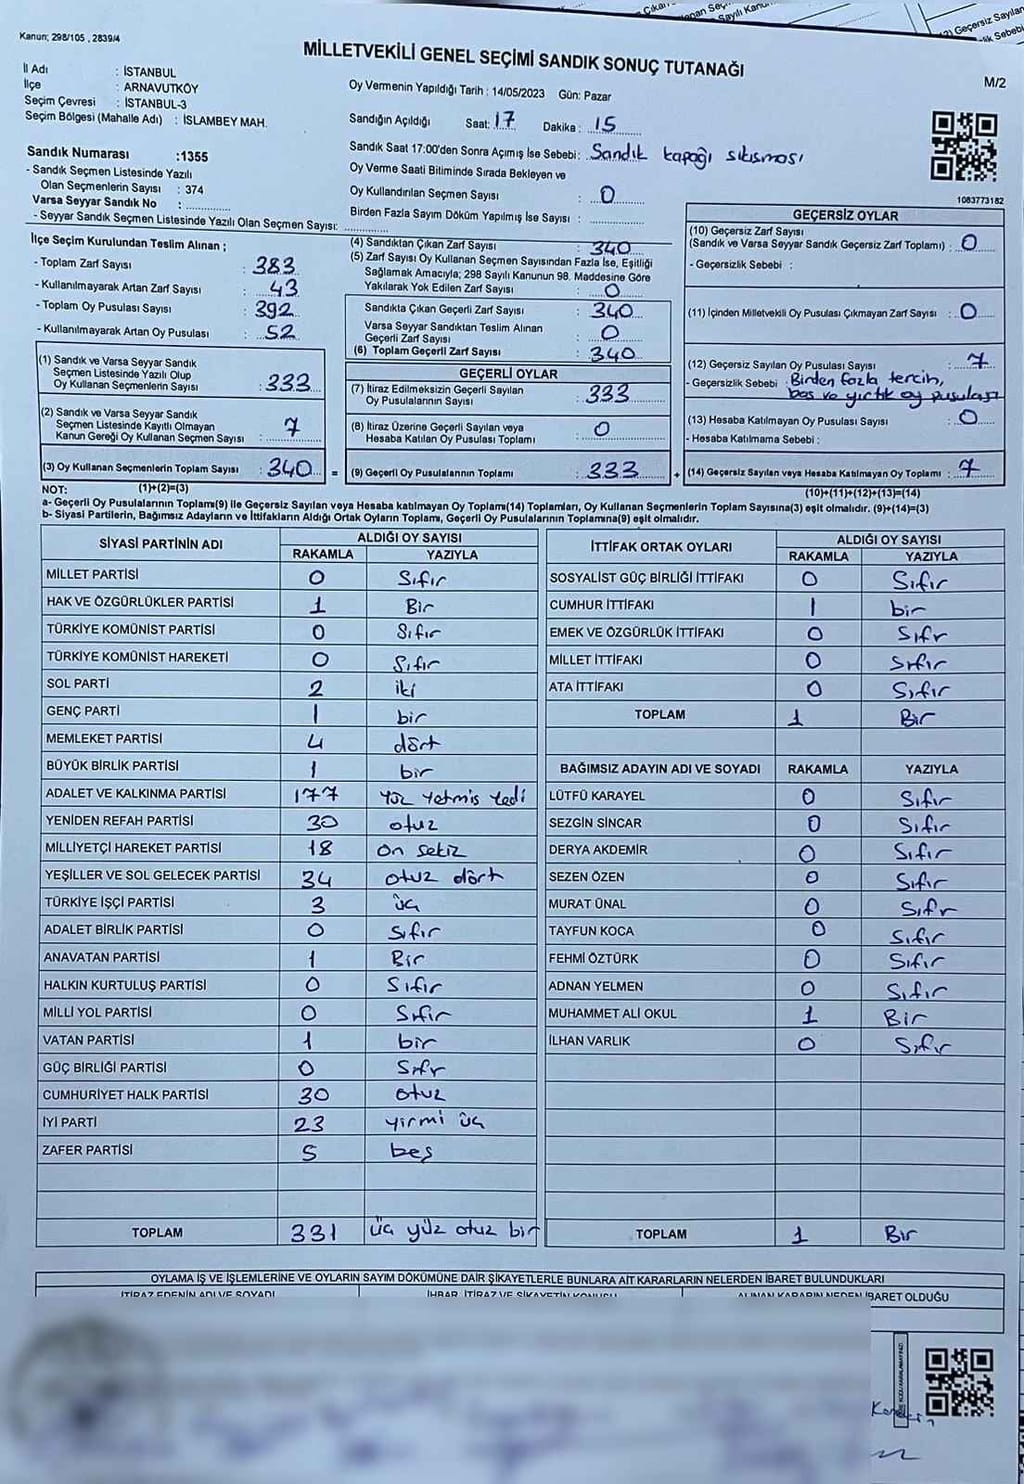 Kanun; 298/105 , 2839/4
MİLLETVEKİLİ GENEL SEÇİMİ SANDIK SONUÇ TUTANAĞI
M/2
İl Adı : İSTANBUL
İlçe : ARNAVUTKÖY
Seçim Çevresi : İSTANBUL-3
Seçim Bölgesi (Mahalle Adı) : İSLAMBEY MAH.
Oy Vermenin Yapıldığı Tarih : 14/05/2023 Gün: Pazar
Sandığın Açıldığı Saat: 17 Dakika : 15
Sandık Saat 17:00'den Sonra Açımış İse Sebebi: Sandık kapağı sıkışması
Sandık Numarası :1355
- Sandık Seçmen Listesinde Yazılı
Olan Seçmenlerin Sayısı : 374
Varsa Seyyar Sandık No :
- Seyyar Sandık Seçmen Listesinde Yazılı Olan Seçmen Sayısı:
Oy Verme Saati Bitiminde Sırada Bekleyen ve
Oy Kullandırılan Seçmen Sayısı : 0
Birden Fazla Sayım Döküm Yapılmış İse Sayısı :
1083773182
İlçe Seçim Kurulundan Teslim Alınan ;
- Toplam Zarf Sayısı : 383
- Kullanılmayarak Artan Zarf Sayısı : 43
- Toplam Oy Pusulası Sayısı : 392
- Kullanılmayarak Artan Oy Pusulası : 52
(1) Sandık ve Varsa Seyyar Sandık
Seçmen Listesinde Yazılı Olup
Oy Kullanan Seçmenlerin Sayısı : 333
(2) Sandık ve Varsa Seyyar Sandık
Seçmen Listesinde Kayıtlı Olmayan
Kanun Gereği Oy Kullanan Seçmen Sayısı : 7
(3) Oy Kullanan Seçmenlerin Toplam Sayısı : 340
(4) Sandıktan Çıkan Zarf Sayısı : 340
(5) Zarf Sayısı Oy Kullanan Seçmen Sayısından Fazla İse, Eşitliği
Sağlamak Amacıyla; 298 Sayılı Kanunun 98. Maddesine Göre
Yakılarak Yok Edilen Zarf Sayısı : 0
Sandıkta Çıkan Geçerli Zarf Sayısı : 340
Varsa Seyyar Sandıktan Teslim Alınan
Geçerli Zarf Sayısı : 0
(6) Toplam Geçerli Zarf Sayısı : 340
GEÇERLİ OYLAR
(7) İtiraz Edilmeksizin Geçerli Sayılan
Oy Pusulalarının Sayısı : 333
(8) İtiraz Üzerine Geçerli Sayılan veya
Hesaba Katılan Oy Pusulası Toplamı : 0
= (9) Geçerli Oy Pusulalarının Toplamı : 333
GEÇERSİZ OYLAR
(10) Geçersiz Zarf Sayısı
(Sandık ve Varsa Seyyar Sandık Geçersiz Zarf Toplamı) : 0
- Geçersizlik Sebebi :
(11) İçinden Milletvekili Oy Pusulası Çıkmayan Zarf Sayısı : 0
(12) Geçersiz Sayılan Oy Pusulası Sayısı : 7
- Geçersizlik Sebebi : Birden fazla tercih,
boş ve yırtık oy pusulası
(13) Hesaba Katılmayan Oy Pusulası Sayısı : 0
- Hesaba Katılmama Sebebi :
+ (14) Geçersiz Sayılan veya Hesaba Katılmayan Oy Toplamı : 7
NOT: (1)+(2)=(3)
(10)+(11)+(12)+(13)=(14)
a- Geçerli Oy Pusulalarının Toplamı(9) ile Geçersiz Sayılan veya Hesaba katılmayan Oy Toplamı(14) Toplamları, Oy Kullanan Seçmenlerin Toplam Sayısına(3) eşit olmalıdır. (9)+(14)=(3)
b- Siyasi Partilerin, Bağımsız Adayların ve İttifakların Aldığı Ortak Oyların Toplamı, Geçerli Oy Pusulalarının Toplamına(9) eşit olmalıdır.
SİYASİ PARTİNİN ADI
ALDIĞI OY SAYISI
RAKAMLA YAZIYLA
MİLLET PARTİSİ 0 Sıfır
HAK VE ÖZGÜRLÜKLER PARTİSİ 1 Bir
TÜRKİYE KOMÜNİST PARTİSİ 0 Sıfır
TÜRKİYE KOMÜNİST HAREKETİ 0 Sıfır
SOL PARTİ 2 iki
GENÇ PARTİ 1 bir
MEMLEKET PARTİSİ 4 dört
BÜYÜK BİRLİK PARTİSİ 1 bir
ADALET VE KALKINMA PARTİSİ 177 Yüz Yetmiş Yedi
YENİDEN REFAH PARTİSİ 30 otuz
MİLLİYETÇİ HAREKET PARTİSİ 18 on sekiz
YEŞİLLER VE SOL GELECEK PARTİSİ 34 otuz dört
TÜRKİYE İŞÇİ PARTİSİ 3 üç
ADALET BİRLİK PARTİSİ 0 Sıfır
ANAVATAN PARTİSİ 1 Bir
HALKIN KURTULUŞ PARTİSİ 0 Sıfır
MİLLİ YOL PARTİSİ 0 Sıfır
VATAN PARTİSİ 1 bir
GÜÇ BİRLİĞİ PARTİSİ 0 Sıfır
CUMHURİYET HALK PARTİSİ 30 otuz
İYİ PARTİ 23 yirmi üç
ZAFER PARTİSİ 5 beş
TOPLAM 331 üç yüz otuz bir
İTTİFAK ORTAK OYLARI
ALDIĞI OY SAYISI
RAKAMLA YAZIYLA
SOSYALİST GÜÇ BİRLİĞİ İTTİFAKI 0 Sıfır
CUMHUR İTTİFAKI 1 bir
EMEK VE ÖZGÜRLÜK İTTİFAKI 0 Sıfır
MİLLET İTTİFAKI 0 Sıfır
ATA İTTİFAKI 0 Sıfır
TOPLAM 1 Bir
BAĞIMSIZ ADAYIN ADI VE SOYADI RAKAMLA YAZIYLA
LÜTFÜ KARAYEL 0 Sıfır
SEZGİN SİNCAR 0 Sıfır
DERYA AKDEMİR 0 Sıfır
SEZEN ÖZEN 0 Sıfır
MURAT ÜNAL 0 Sıfır
TAYFUN KOCA 0 Sıfır
FEHMİ ÖZTÜRK 0 Sıfır
ADNAN YELMEN 0 Sıfır
MUHAMMET ALİ OKUL 1 Bir
İLHAN VARLIK 0 Sıfır
TOPLAM 1 Bir
OYLAMA İŞ VE İŞLEMLERİNE VE OYLARIN SAYIM DÖKÜMÜNE DAİR ŞİKAYETLERLE BUNLARA AİT KARARLARIN NELERDEN İBARET BULUNDUKLARI
İTİRAZ EDENİN ADI VE SOYADI
İHBAR, İTİRAZ VE ŞİKAYETİN KONUSU
ALINAN KARARIN NEDEN İBARET OLDUĞU